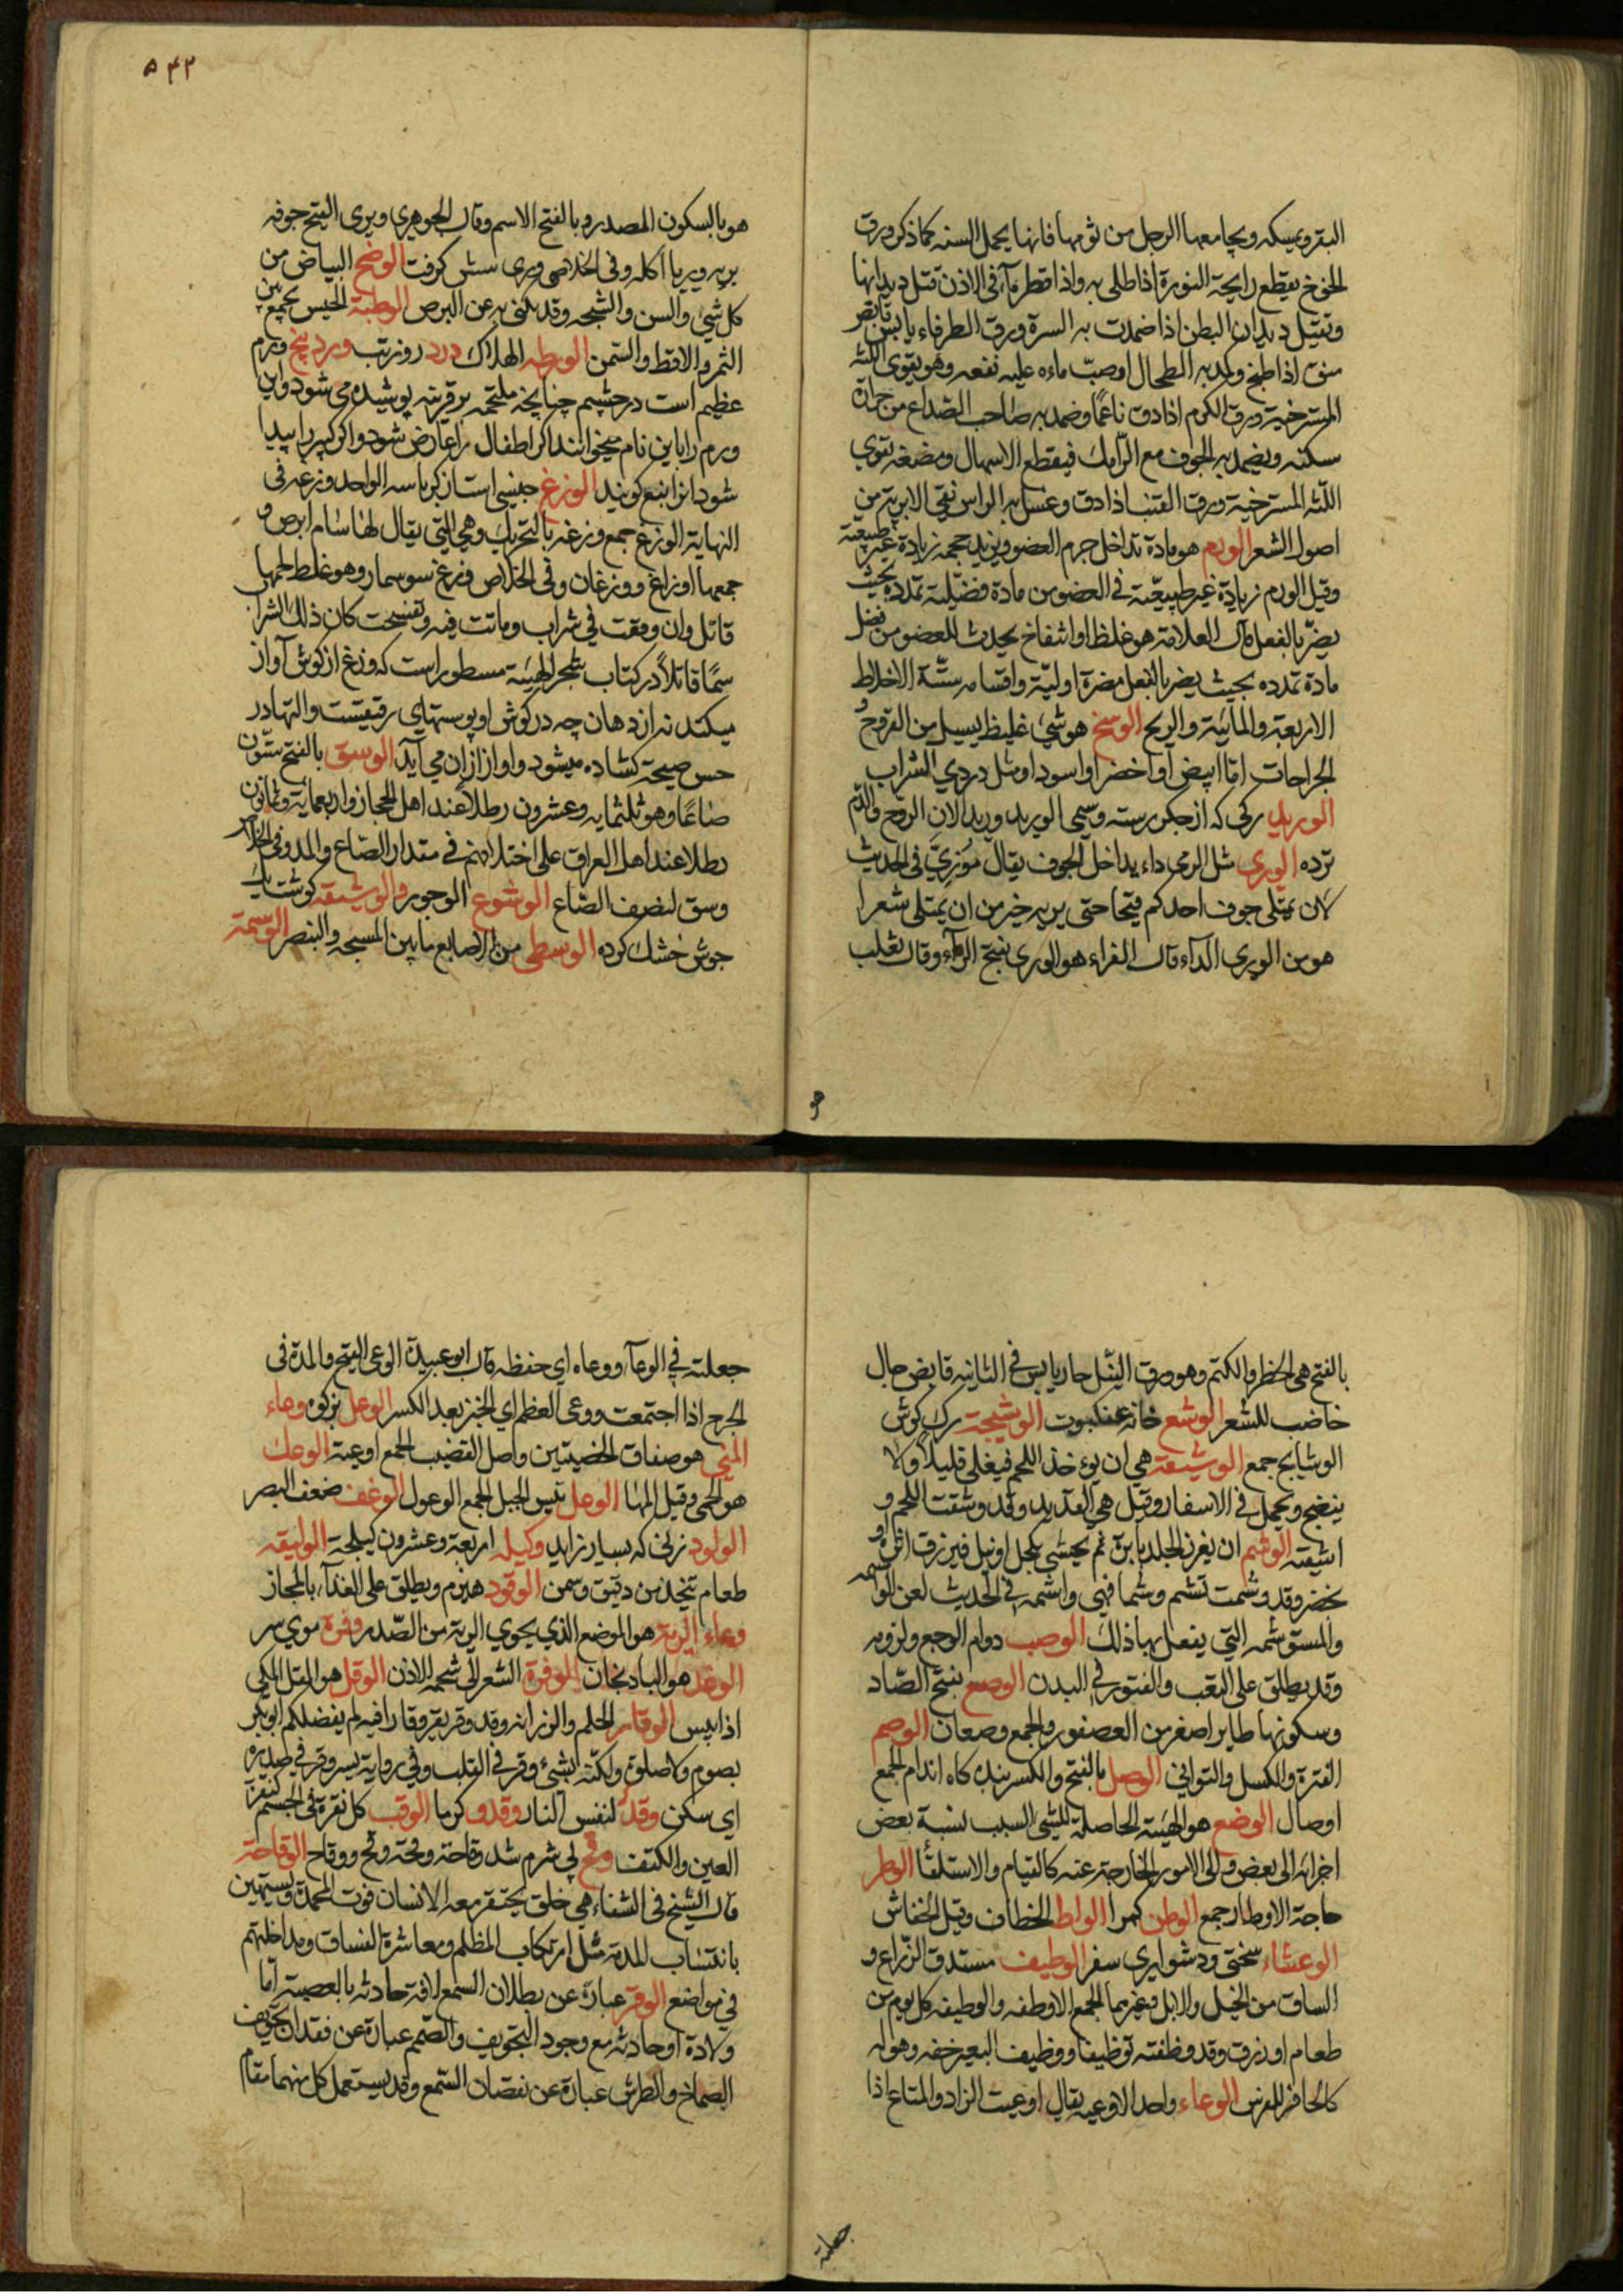 البقر ويمسكه ويجامعها الرجل من ثومها فانها يحمل السنه كما ذكر ورق
الخوخ يقطع رايحة النورة اذا طلى به واذا قطر ماؤه فى الاذن قتل ديدانها
وتقتل ديدان البطن اذا ضمدت به السرة ورق الطرفاء يابس قابض
منق اذا طبخ وكمد به الطحال اوصب ماءه عليه نفعه وهو يقوى اللثة
المسترخية ورق الكرم اذا دق ناعمًا وضمد به صاحب الصّداع من حرارة
سكنه ويضمد به الجوف مع الرّامك فيقطع الاسهال ومضغه يقوي
اللثه المسترخية ورق القنب اذا دق وغسل به الراس نقى الابرية من
اصول الشعر الورم هو مادة تداخل جرم العضو ويزيد حجمه زيادة غير طبيعية
وقيل الورم زيادة غير طبيعيّة فى العضو من مادة فضيلية تمدده بحيث
يضرّ بالفعل قال العلامة هو غلظ او انتفاخ يحدث للعضو من فضل
مادة تمدده بحيث يضر بالفعل مضرة اوليّة واقسامه ستّة الاخلاط
الاربعة والمآئية والريح الوسخ هو شئ غليظ يسيل من القروح و
الجراحات اما ابيض او اخضر او اسود او مثل دردي الشراب
الوريد ركى كه از جكر رسته وسمى الوريد وريدًا لان الروح والدّم
ترده الورى مثل الرمى داء يداخل الجوف يقال مَوْرِيّ فى الحديث
لان يمتلى جوف احدكم قيحا حتى يريه خير من ان يمتلى شعرا
هو من الوري الدآء قال الفراء هو الورى بفتح الرآء وقال ثعلب
هو
۵۴۲
هو بالسكون المصدر وبالفتح الاسم وقال الجوهري وروى القيح جوفه
يريه وريا اكله وفى الخلاص ورى شش كرفت الوضح البياض من
كل شئ والسن والشجه وقد يكنى به عن البرص الوطبة الحيس يجمع بين
التمر والاقط والسّمن الورطه الهلاك درد روز تب وردينج ورم
عظيم است در چشم چنانچه ملتحمه بر قرنيه پوشيده مى شود واين
ورم را باين نام ميخوانند اكر اطفال را عارض شود واكر كبير را پيدا
شود انرا نبع كويند الوزغ جنيسى است از كرباسه الواحد وزغه فى
النهاية الوزغ جمع وزغه بالتحريك وهي التي يقال لها سام ابرص و
جمعها اوزاغ ووزغان وفى الخلاص وزغ سوسمار وهو غلط لحمها
قاتل وان وقعت في شراب وماتت فيه وتفسحت كان ذلك الشراب
سمًا قاتلًا در كتاب شجر الهيئة مسطور است كه وزغ از كوش آواز
ميكند نه از دهان چه در كوش او پوستهاى رقيقيست والتهادر
حس صيحه كشاده ميشود واواز ازان مى آيد الوسق بالفتح ستّون
صاعًا وهو ثلثمايه وعشرون رطلًا عند اهل الحجاز واربعماية وثمانون
رطلًا عند اهل العراق على اختلافهم فى مقدار الصّاع والمد وفى الخلاص
وسق لنصف الصّاع الوشوع الوجور والوشيقه كوشت يك
جوش خشك كرده الوسطى من الاصابع ما بين المسبحه والبنصر الوسمة
بالفتح هى الخطر والكتم وهو ورق النيل حار يابس فى الثانيه قابض جال
خاضب للشعر الوشع خانه عنكبوت الوشيجة رك كوش
الوشايج جمع الوشيقة هي ان يؤخذ اللحم فيغلى قليلًا ولا
ينضج ويحمل فى الاسفار وقيل هي القديد وقد وشقت اللحم و
اشيقته الوشم ان يغرز الجلد بابرة ثم يحشى بكحل او نيل فيزرق اثره او
يخضر وقد وشمت تشم وشما فهى واشمه فى الحديث لعن الواشمه
والمستوشمه التى يفعل بها ذلك الوصب دوام الوجع ولزومه
وقد يطلق على التعب والفتور فى البدن الوصع بفتح الصّاد
وسكونها طاير اصغر من العصفور والجمع وصعان الوصم
الفترة والكسل والتوانى الوصل بالفتح والكسر بندكاه اندام الجمع
اوصال الوضع هو الهيئة الحاصلة للشئ السبب نسبة بعض
اجزائه الى بعض والى الامور الخارجة عنه كالقيام والاستلقأ الوطر
حاجة الاوطار جمع الوطن كمرا الواط الخطاف وقيل الخفاش
الوعثاء سختى ودشوارى سفر الوظيف مستدق الذّراع و
الساق من الخيل والابل وغيرها الجمع الاوظفه والوظيفه كل يوم من
طعام او رزق وقد وظفته توظيفا ووظيف البعير خفه وهو له
كالحافر للفرس الوعاء واحد الاوعيه يقال اوعيت الزاد والمتاع اذا
جعلته
جعلته في الوعآء ووعاه اي حفظه قال ابو عبيدة الوعى القيح والمدة فى
الجرح اذا اجتمعت ووعى العظم اي انجبر بعد الكسر الوعل بزكوه وعاء
المنى هو صفاق الخصيتين واصل القضيب الجمع اوعية الوعك
هو الحمى وقيل المها الوعل تيس الجبل الجمع الوعول الوغف ضعف البصر
الولود زنى كه بسيار زايد وكيله اربعة وعشرون كيلجة الوليقه
طعام يتخذ من دقيق وسمن الوقود هيزم ويطلق على الغذآء بالمجاز
وعاء الرية هو الموضع الذي يحوي الرية من الصّدر وفرة موي سر
الوغد هو البادنجان الوفرة الشعر الى شحمة الاذن الوقل هو المقل المكى
اذا يبس الوقار الحلم والرزانه وقد وقر يقر وقارا فيه لم يفضلكم ابو بكر
بصوم ولا صلوة ولكنّه بشئ وقر فى القلب وفى رواية يسر وقر فى صدره
اي سكن وقد لنفس النار وقدو كرما الوقب كل نقرة فى الجسم كنقرة
العين والكتف وقح بى شرم شد وقاحة وقحة وقح ووقاح الوقاحة
قال الشيخ فى الشفاء هي خلق يحتقر معه الانسان فوت المحمدة ويستهين
بانتساب المذمة مثل ارتكاب المظلم ومعاشرة الفساق ومداخلتهم
في مواضع الوقر عبارة عن بطلان السمع لافة حادثه بالعصبة اما
ولادة او حادثه مع وجود التجويف والصّمم عبارة عن فقدان تجويف
الصماخ والطرش عبارة عن نقصان السّمع وقد يستعمل كل منهما مقام